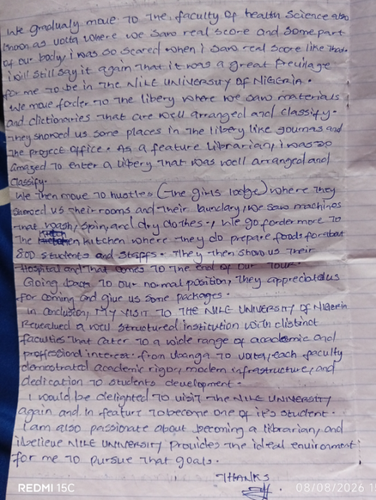 We gradualy move To The faculty of health Science also
known as volta where we saw real score and some part
of our body, i was so scared when I saw real score like that
i will still say it again that it was a great previlage
for me to be in the NILE UNIVERSITY OF NIGERIA.
We move forder To The libery where we saw materials
and dictionaries that are well arranged and classify.
They showed us some places in the libery like journas and
The project office. As a feature Librarian, i was so
amazed To enter a libery That was well arranged and
classify.
We then move to hustles (The girls lodge) where They
showed us their rooms and their laundary, we saw machines
that wash, spin, and dry clothes., We go fordermore To
The kitchen where they do prepare foods for about
800 students and staffs. They then show us Their
Hospital and that comes To The end of our Tour.
Going back To our normal position, They appreciate us
for coming and give us some packages.
In conclusion, my visit To THE NILE UNIVERSITY OF Nigeria
Revealed a well structured institution with distinct
faculties That cater To a wide range of academic and
professional interest. from Ubanga To volta, each faculty
demostrated academic rigor, modern infrastructure, and
dedication To students development.
I would be delighted To visit The NILE UNIVERSITY
again and in feature To become one of it's student.
I am also passionate about becoming a librarian, and
i believe NILE UNIVERSITY provides The ideal environment
for me To pursue that goals.
THANKS
REDMI 15C
08/08/2026 15